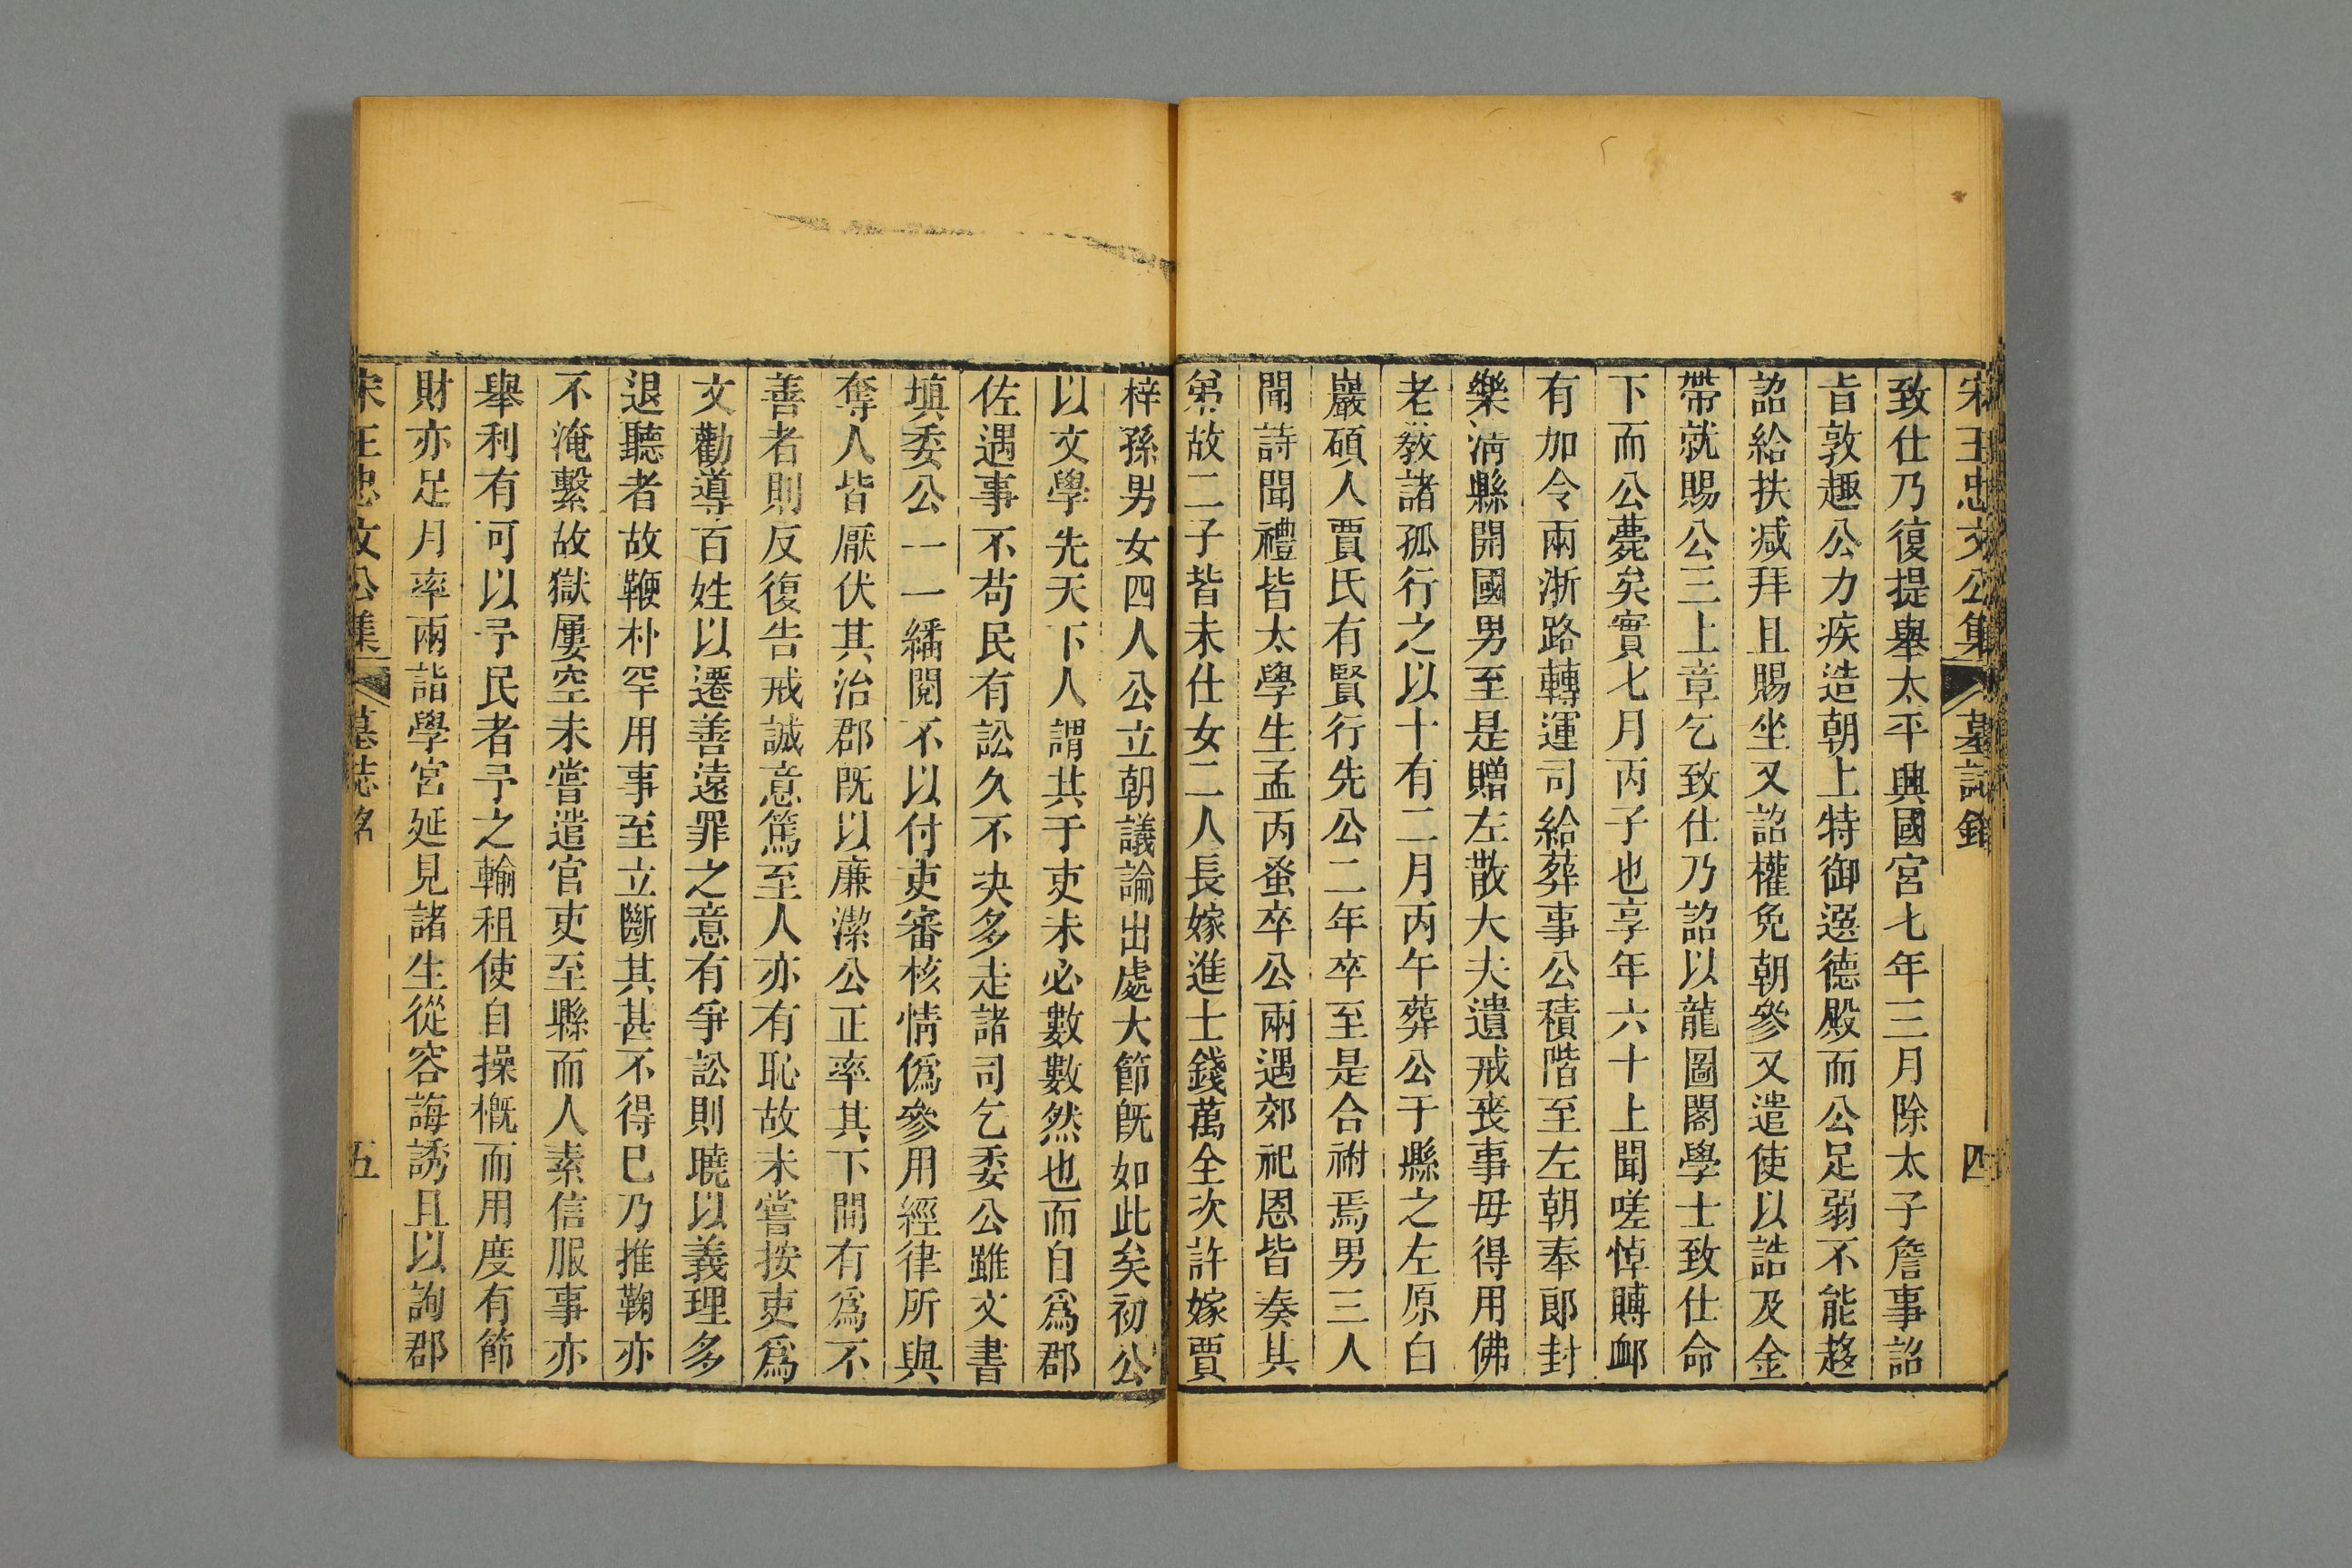 宋王忠文公集 墓誌銘 四
致仕乃復提舉太平興國宮七年三月除太子詹事詔
旨敦趣公力疾造朝上特御選德殿而公足弱不能趍
詔給扶减拜且賜坐又詔權免朝參又遣使以誥及金
帶就賜公三上章乞致仕乃詔以龍圖閣學士致仕命
下而公薨矣實七月丙子也享年六十上聞嗟悼賻卹
有加令兩浙路轉運司給葬事公積階至左朝奉郎封
樂清縣開國男至是贈左散大夫遺戒喪事毋得用佛
老敎諸孤行之以十有二月丙午葬公于縣之左原白
巖碩人賈氏有賢行先公二年卒至是合祔焉男三人
聞詩聞禮皆太學生孟丙蚤卒公兩遇郊祀恩皆奏其
弟故二子皆未仕女二人長嫁進士錢萬全次許嫁賈
梓孫男女四人公立朝議論出處大節旣如此矣初公
以文學先天下人謂其于吏未必數數然也而自爲郡
佐遇事不苟民有訟久不决多走諸司乞委公雖文書
塡委公一一繙閱不以付吏審核情僞參用經律所與
奪人皆厭伏其治郡旣以廉潔公正率其下間有爲不
善者則反復告戒誠意篤至人亦有恥故未嘗按吏爲
文勸導百姓以遷善遠罪之意有爭訟則曉以義理多
退聽者故鞭朴罕用事至立斷其甚不得巳乃推鞫亦
不淹繫故獄屢空未嘗遣官吏至縣而人素信服事亦
舉利有可以予民者予之輸租使自操槪而用度有節
財亦足月率兩詣學宮延見諸生從容誨誘且以詢郡
宋王忠文公集 墓誌銘 五